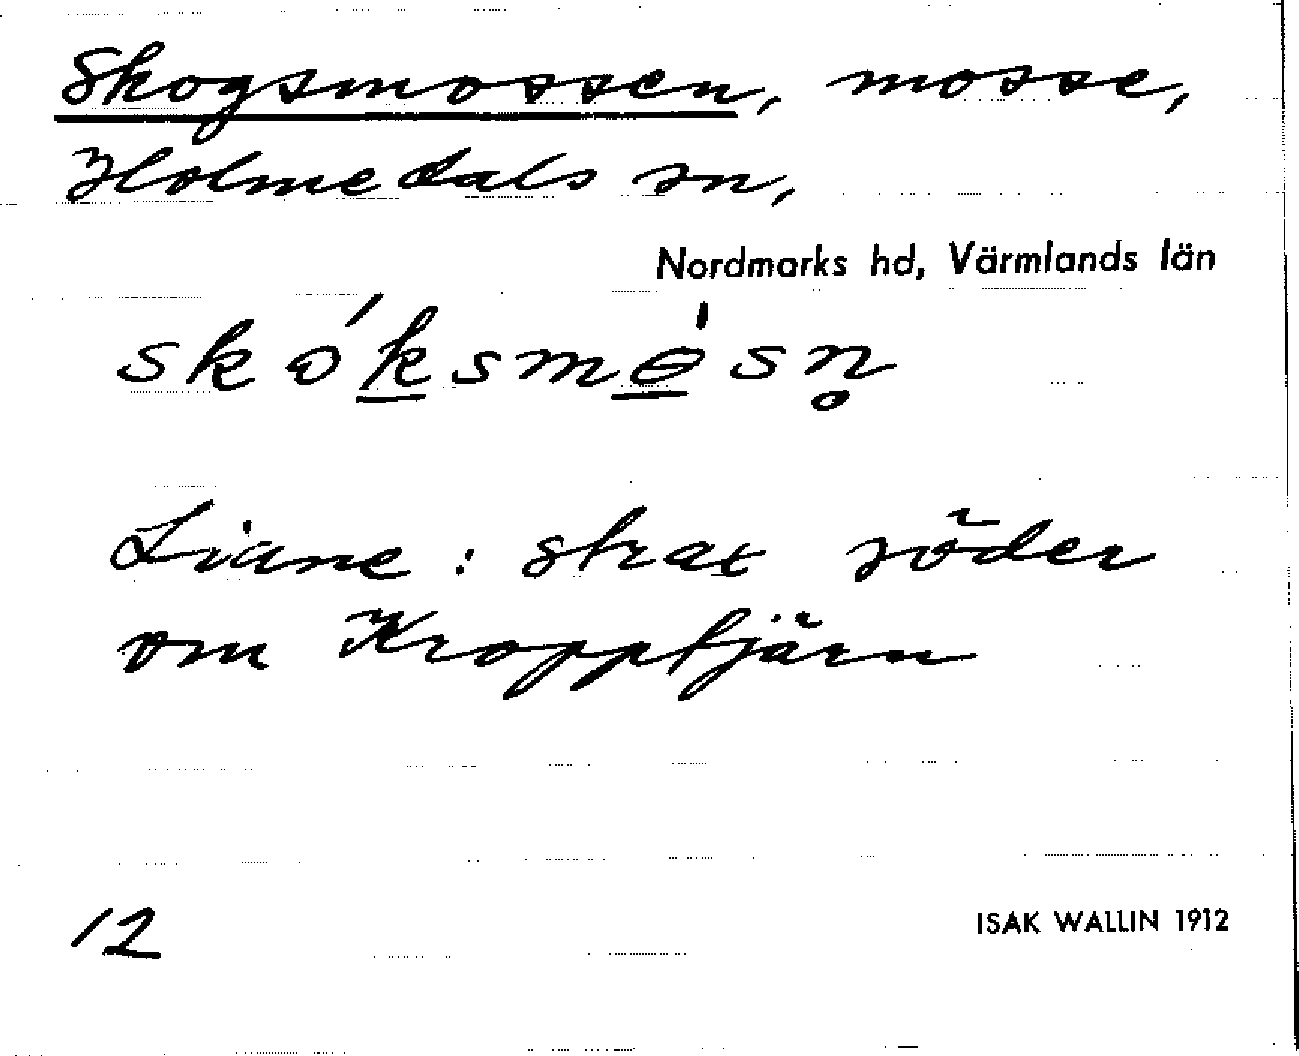 Skogsmossen, mosse,
Holmedals sn,
Nordmarks hd, Värmlands län
skóksmɵ́sn̥
Liane : strax söder
om Kropptjärn
12
ISAK WALLIN 1912